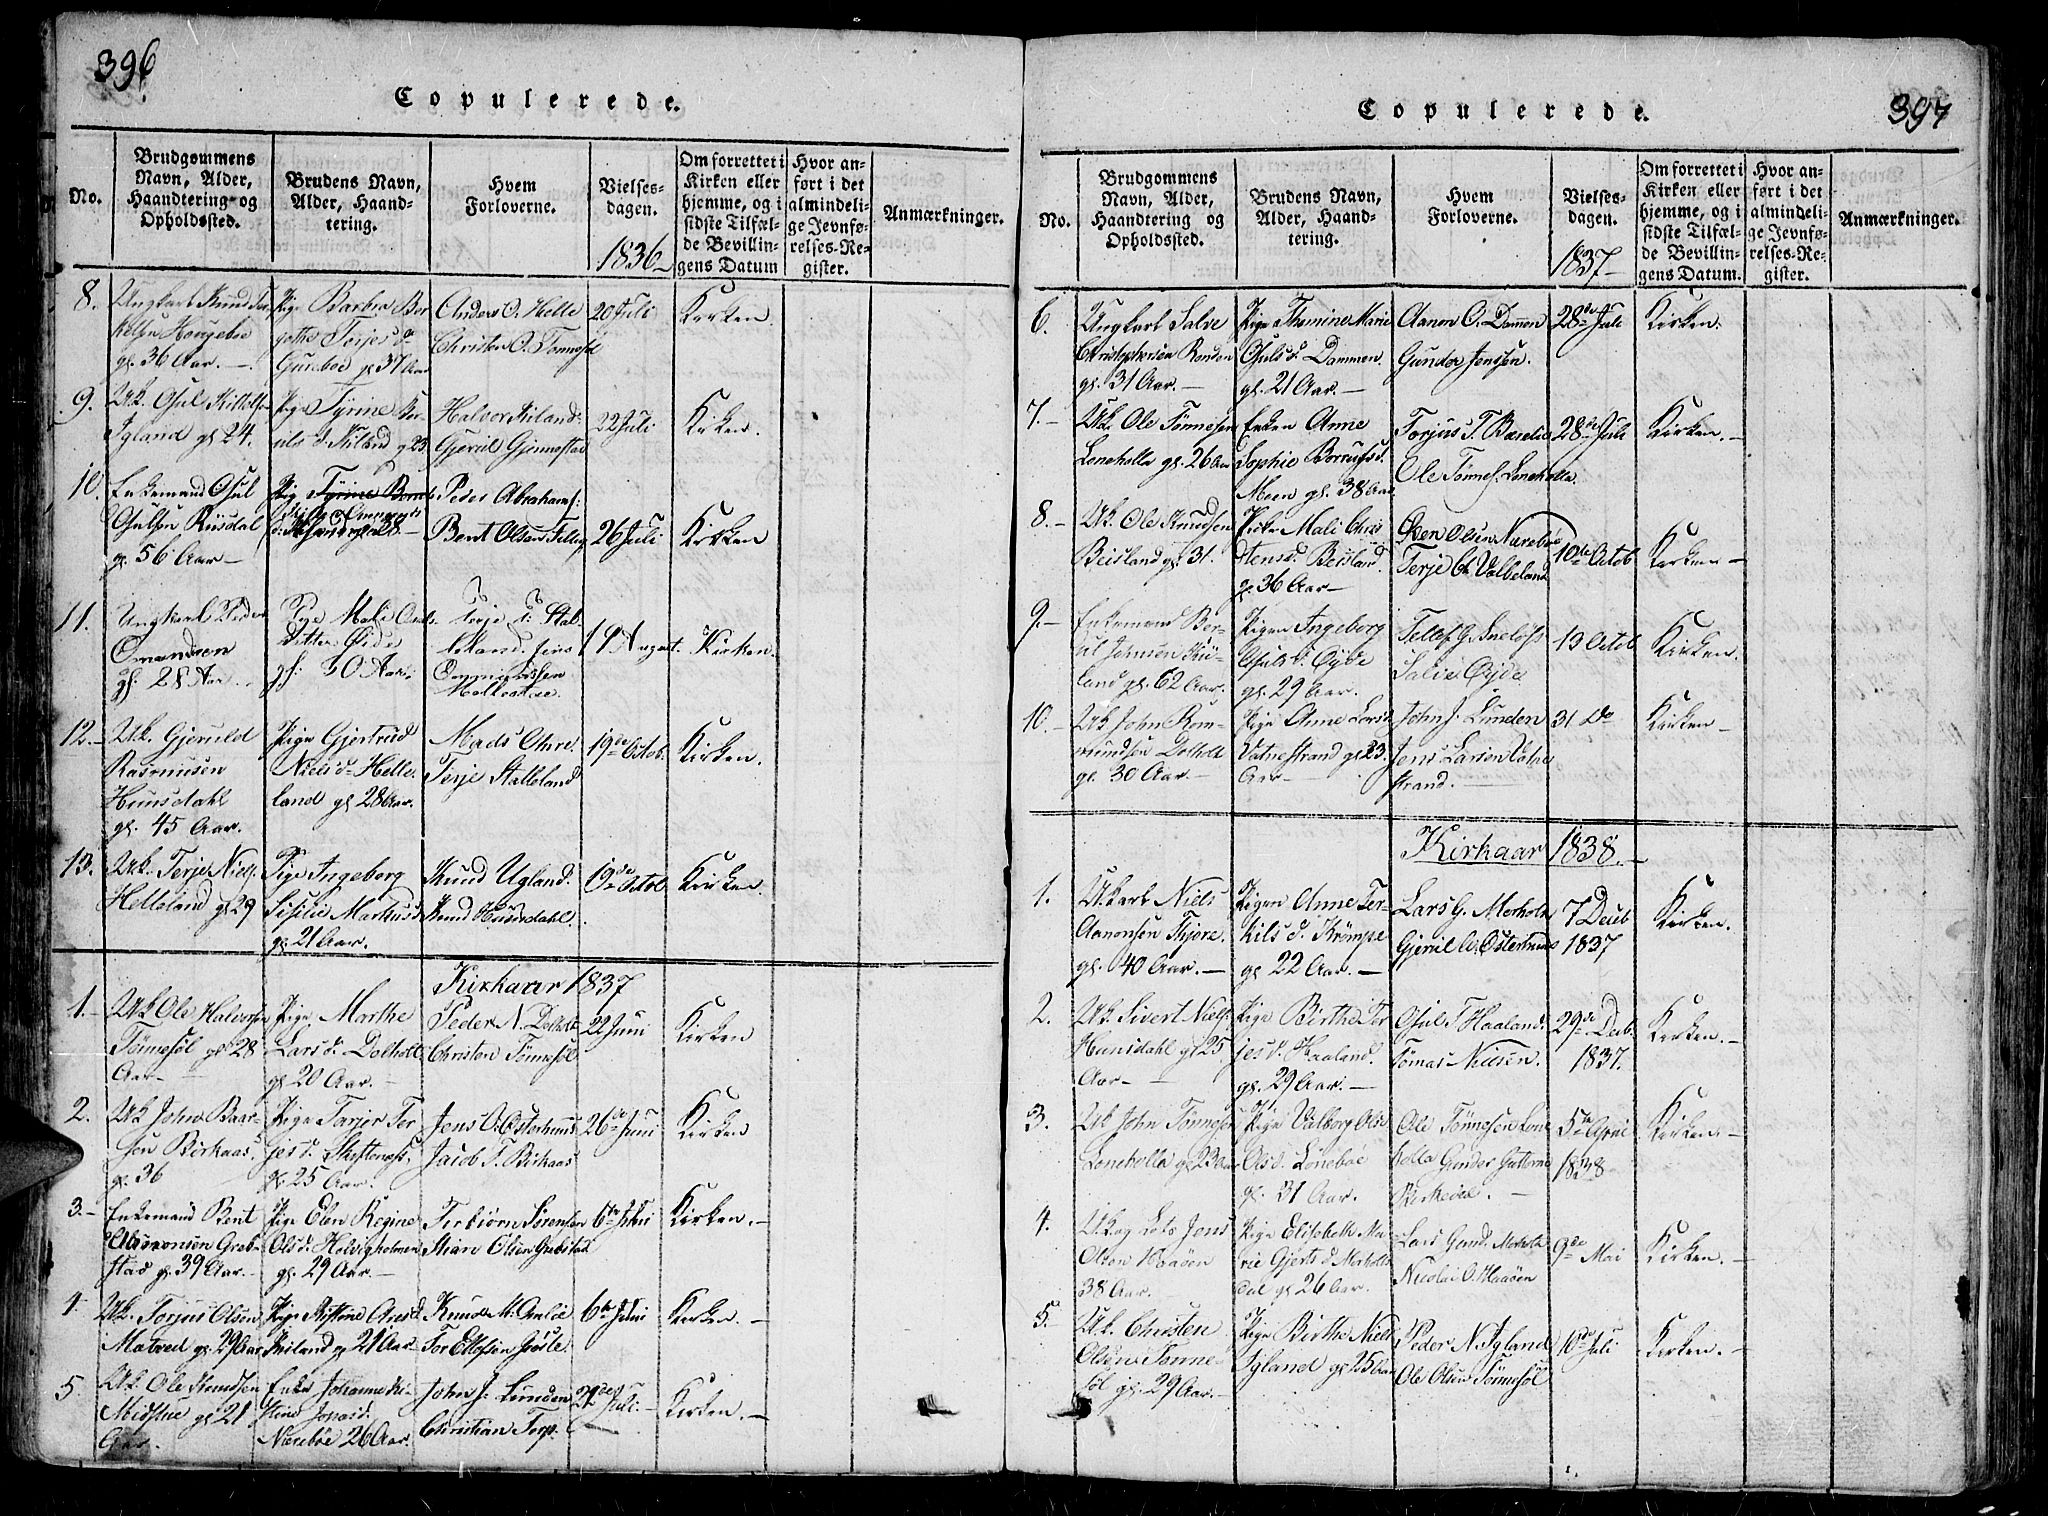 396
Copulerede.
No.
Brudgommens Navn, Alder, Haandtering og Opholdssted.
Brudens Navn, Alder, Haandtering.
Hvem Forloverne.
Vielsesdagen.
1836
Om forrettet i Kirken eller hjemme, og i sidste Tilfælde Bevillingens Datum
Hvor anført i det almindelige Jevnførelses-Register.
Anmærkninger.
8.
Ungkarl Knud
gl. 36 Aar.
Pige Barbro Bor
gethe Torjesd
gl 37 Aar
Anders O. Helle
Christen O. Tønnesøl
20 Juli
Kirken.
9.
Uk. Osul Kittelsen
Igland gl 24.
Pige Tyrine
Halvor Kiland
Gjeruld Gjennestad
22 Juli
Kirken.
10.
Enkemand Osul
Osulsen Riisdal
gl. 56 Aar
Pige Tyrine
28
Peder Abrahams:
Bent Olsen
26 Juli
Kirken
11.
Ungkarl Peder
Omundsen
gl. 28 Aar
Pige Mali
datter Øide
gl. 30 Aar
Terje T. Stal
leland. Jens
Ommundsen
19 August.
Kirken.
12.
Uk. Gjeruld
Rasmusen
Huusdahl
gl. 45 Aar.
Pige Gjertrud
Nielsd Helle
land gl 28 Aar.
Mads Ohre
Terje Stalleland
19de Octob.
Kirken.
13.
Uk. Terje Niels.
Helleland gl 29
Pige Ingeborg
Sisilie Markusd
gl. 21 Aar.
Knud Ugland.
Knud Huusdahl.
19de Octob
Kirken.
Kirkaar 1837
1.
Uk Ole Halvorsen
Tønnesøl gl 28
Aar
Pige Marthe
Lars d. Dolholt
gl. 20 Aar.
Peder N. Dolholt
Christen Tønnesøl
22 Juni
Kirken
2.
Uk John Baar-
sen Birkaas
gl. 36
Pige Torjer Ter
jes d. Skeftenes
gl. 25 Aar.
Jens O. Osterhuus
Jacob T. Birkaas
26de Juni
Kirken
3.
Enkemand Bent
Aanonsen Greb-
stad gl. 39 Aar.
Pige Elen Regine
Ols d. Helvigholmen
gl. 29 Aar.
Terbiørn Sørensen
Stian Olsen Grebstad
6te Juli
Kirken.
4
Uk. Torjus Olsen
Matved gl. 29 Aar
Pige Kistine Aresd.
Kiland gl 21 Aar
Knud M. Omlie
Tor Ellefsen
6te Juli
Kirken.
5
Uk. Ole Knudsen
Midthue gl 21
Aar.
Enke Johanne Ki-
stine Jonasd.
Nærebøe 26 Aar.
John J. Lunden
Christian Torp.
Juli.
Kirken.
397
Copulerede.
No.
Brudgommens Navn, Alder, Haandtering og Opholdssted.
Brudens Navn, Alder, Haandtering.
Hvem Forloverne.
Vielsesdagen.
1837
Om forrettet i Kirken eller hjemme, og i sidste Tilfælde Bevillingens Datum.
Hvor anført i det almindelige Jevnførelses-Register.
Anmærkninger.
6.
Ungkarl Salve
Christophersen Renden
gl. 31 Aar.
Pige Thomine Marie
Osuls d. Dammen
gl. 21 Aar.
Aanon O. Dammen
Gunder Jenssen.
28de Juli
Kirken.
7.
Uk. Ole Tønnesen
Loneholla gl. 26 Aar
Enken Anne
Sophie
Moen gl. 38 Aar
Torjus T. Bærelie
Ole Tønnes. Loneholla.
28de Juli
Kirken.
8.
Uk. Ole Knudsen
Beisland gl. 31.
Pige Mali Chris
tensd. Beisland.
gl. 36 Aar
Even Olsen Nærebøe
Terje Ch. Valbeland
10de Octob
Kirken
9.
Enkemand Ber-
ul Jensen
land gl. 62 Aar.
Pigen Ingeborg
Osulsd. Øyde
gl. 29 Aar.
Tellef G. Sneløs
Salve Øyde.
19 Octob
Kirken.
10.
Uk John Rom-
mundsen Dolholt
gl. 30 Aar.
Pige Anne Larsd
Vatnestrand gl 23.
Aar
John J. Lunden
Jens Larsen Vatne
strand.
31 Do
Kirken
Kirkaar 1838.
1.
Ukarl Niels
Aanonsen Thjore.
gl. 40 Aar.
Pigen Anne Ter-
kils d. Krømpe
gl 22 Aar.
Lars G. Morholt
Gjeruil A. Osterhuus
7 Decb
1837
Kirken.
2.
Uk. Sivert Niels.
Huusdahl gl 25
Aar
Pige Birthe Ter
jes d. Haaland.
gl. 29 Aar.
Osul T. Haaland.
Tomas Nielsen.
29de Decb.
1837.
Kirken.
3.
Uk John Tønnesen
Loneholla gl 23 Aar
Pige Valborg
Ols d. Lonebøe
gl. 31 Aar.
Ole Tønnesen Lone
holla Gunder Guttorms
Birkedal.
5te April
1838
Kirken.
4.
Uk og Lots Jens
Olsen Haaøen
38 Aar.
Pige Elisebeth Ma
rie Gjerts d. Morholt
gl 26 Aar.
Lars Gund. Morholt
Nicolai O. Haaøen
9de Mai
Kirken.
5.
Uk. Christen
Olsen Tønne-
søl gl. 29 Aar.
Pige Birthe Niels
Igland gl 25 Aar
Peder N. Igland
Ole Olsen Tønnesøl
10de Juli
Kirken.